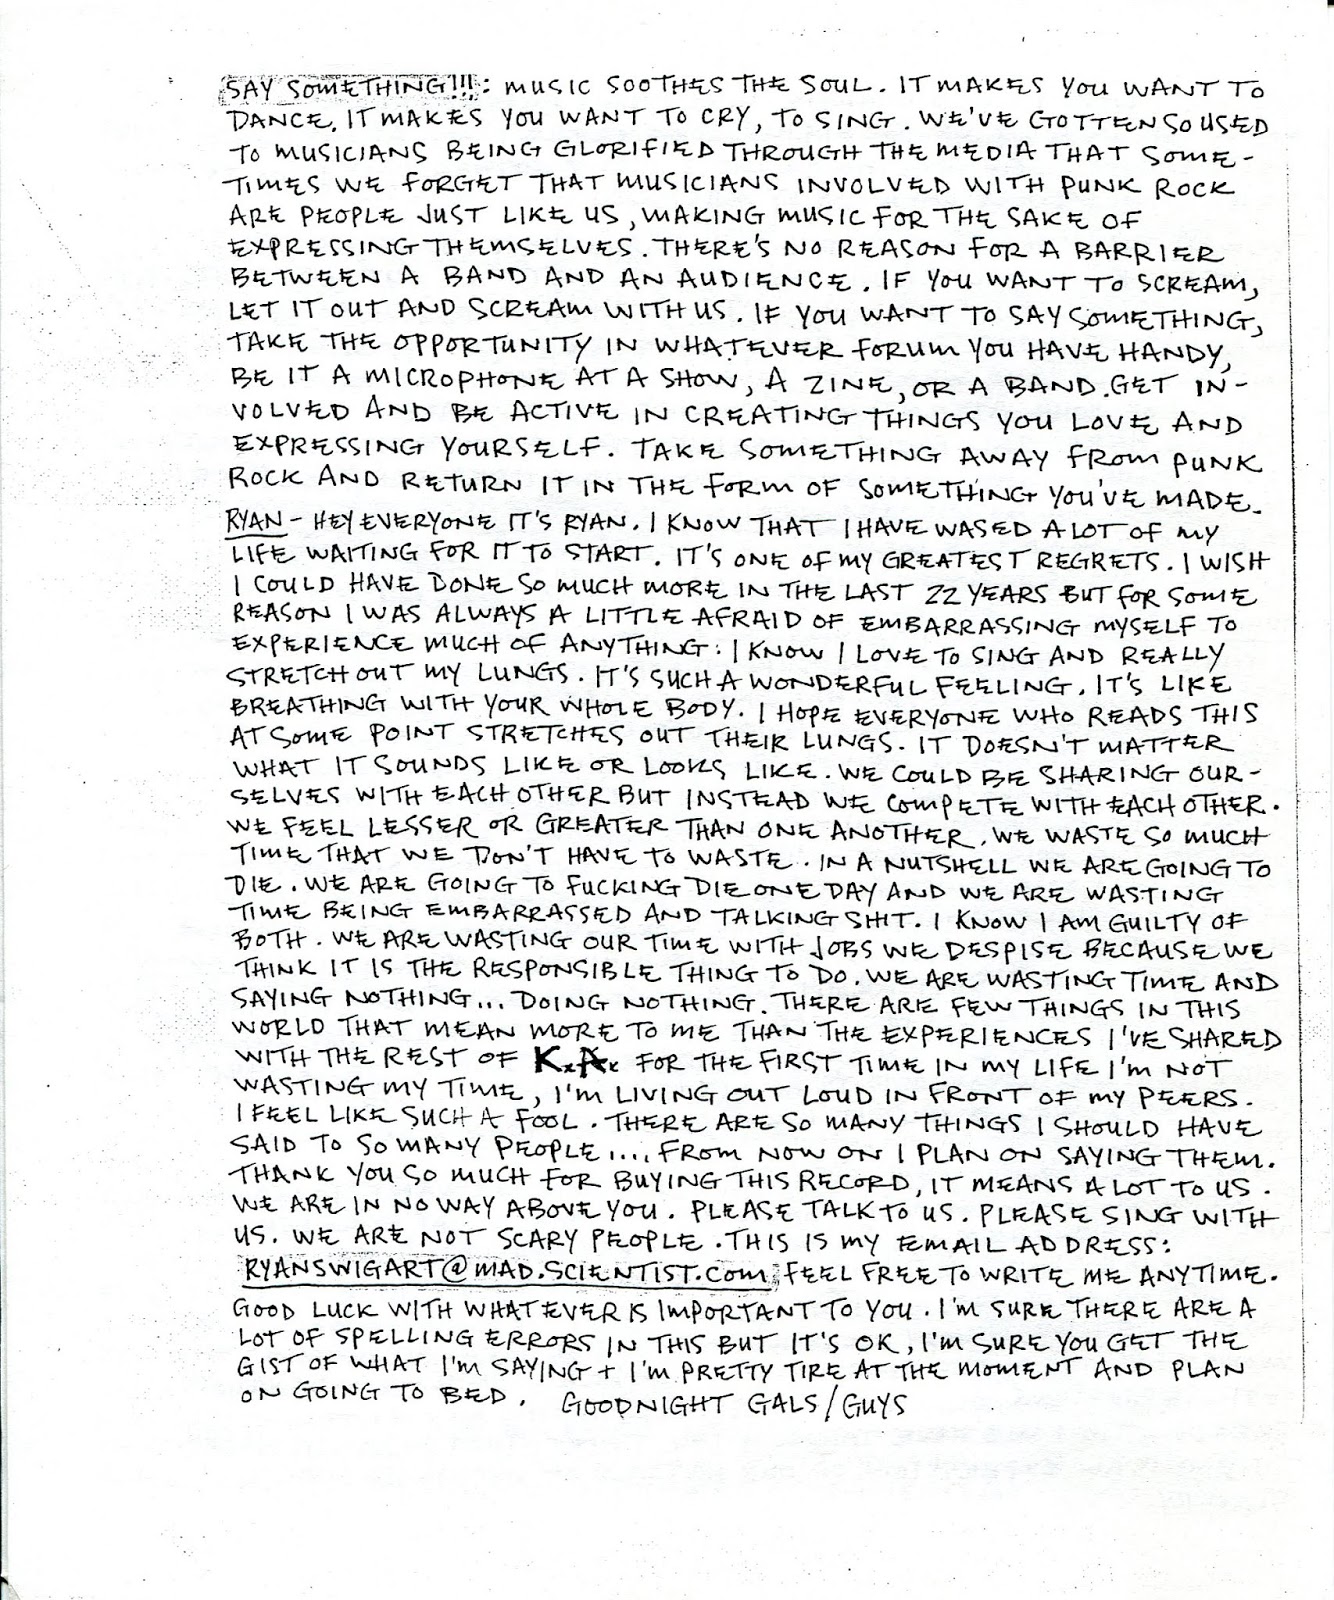 SAY SOMETHING!!!: MUSIC SOOTHES THE SOUL. IT MAKES YOU WANT TO
DANCE. IT MAKES YOU WANT TO CRY, TO SING. WE'VE GOTTEN SO USED
TO MUSICIANS BEING GLORIFIED THROUGH THE MEDIA THAT SOME-
TIMES WE FORGET THAT MUSICIANS INVOLVED WITH PUNK ROCK
ARE PEOPLE JUST LIKE US, MAKING MUSIC FOR THE SAKE OF
EXPRESSING THEMSELVES. THERE'S NO REASON FOR A BARRIER
BETWEEN A BAND AND AN AUDIENCE. IF YOU WANT TO SCREAM,
LET IT OUT AND SCREAM WITH US. IF YOU WANT TO SAY SOMETHING,
TAKE THE OPPORTUNITY IN WHATEVER FORUM YOU HAVE HANDY,
BE IT A MICROPHONE AT A SHOW, A ZINE, OR A BAND. GET IN-
VOLVED AND BE ACTIVE IN CREATING THINGS YOU LOVE AND
EXPRESSING YOURSELF. TAKE SOMETHING AWAY FROM PUNK
ROCK AND RETURN IT IN THE FORM OF SOMETHING YOU'VE MADE.
RYAN - HEY EVERYONE IT'S RYAN. I KNOW THAT I HAVE WASED A LOT OF MY
LIFE WAITING FOR IT TO START. IT'S ONE OF MY GREATEST REGRETS. I WISH
I COULD HAVE DONE SO MUCH MORE IN THE LAST 22 YEARS BUT FOR SOME
REASON I WAS ALWAYS A LITTLE AFRAID OF EMBARRASSING MYSELF TO
EXPERIENCE MUCH OF ANYTHING: I KNOW I LOVE TO SING AND REALLY
STRETCH OUT MY LUNGS. IT'S SUCH A WONDERFUL FEELING. IT'S LIKE
BREATHING WITH YOUR WHOLE BODY. I HOPE EVERYONE WHO READS THIS
AT SOME POINT STRETCHES OUT THEIR LUNGS. IT DOESN'T MATTER
WHAT IT SOUNDS LIKE OR LOOKS LIKE. WE COULD BE SHARING OUR-
SELVES WITH EACH OTHER BUT INSTEAD WE COMPETE WITH EACH OTHER.
WE FEEL LESSER OR GREATER THAN ONE ANOTHER. WE WASTE SO MUCH
TIME THAT WE DON'T HAVE TO WASTE. IN A NUTSHELL WE ARE GOING TO
DIE. WE ARE GOING TO FUCKING DIE ONE DAY AND WE ARE WASTING
TIME BEING EMBARRASSED AND TALKING SHIT. I KNOW I AM GUILTY OF
BOTH. WE ARE WASTING OUR TIME WITH JOBS WE DESPISE BECAUSE WE
THINK IT IS THE RESPONSIBLE THING TO DO. WE ARE WASTING TIME AND
SAYING NOTHING... DOING NOTHING. THERE ARE FEW THINGS IN THIS
WORLD THAT MEAN MORE TO ME THAN THE EXPERIENCES I'VE SHARED
WITH THE REST OF K.A. FOR THE FIRST TIME IN MY LIFE I'M NOT
WASTING MY TIME, I'M LIVING OUT LOUD IN FRONT OF MY PEERS.
I FEEL LIKE SUCH A FOOL. THERE ARE SO MANY THINGS I SHOULD HAVE
SAID TO SO MANY PEOPLE.... FROM NOW ON I PLAN ON SAYING THEM.
THANK YOU SO MUCH FOR BUYING THIS RECORD, IT MEANS A LOT TO US.
WE ARE IN NO WAY ABOVE YOU. PLEASE TALK TO US. PLEASE SING WITH
US. WE ARE NOT SCARY PEOPLE. THIS IS MY EMAIL ADDRESS:
RYANSWIGART@MAD.SCIENTIST.COM; FEEL FREE TO WRITE ME ANYTIME.
GOOD LUCK WITH WHATEVER IS IMPORTANT TO YOU. I'M SURE THERE ARE A
LOT OF SPELLING ERRORS IN THIS BUT IT'S OK, I'M SURE YOU GET THE
GIST OF WHAT I'M SAYING + I'M PRETTY TIRE AT THE MOMENT AND PLAN
ON GOING TO BED. GOODNIGHT GALS/GUYS